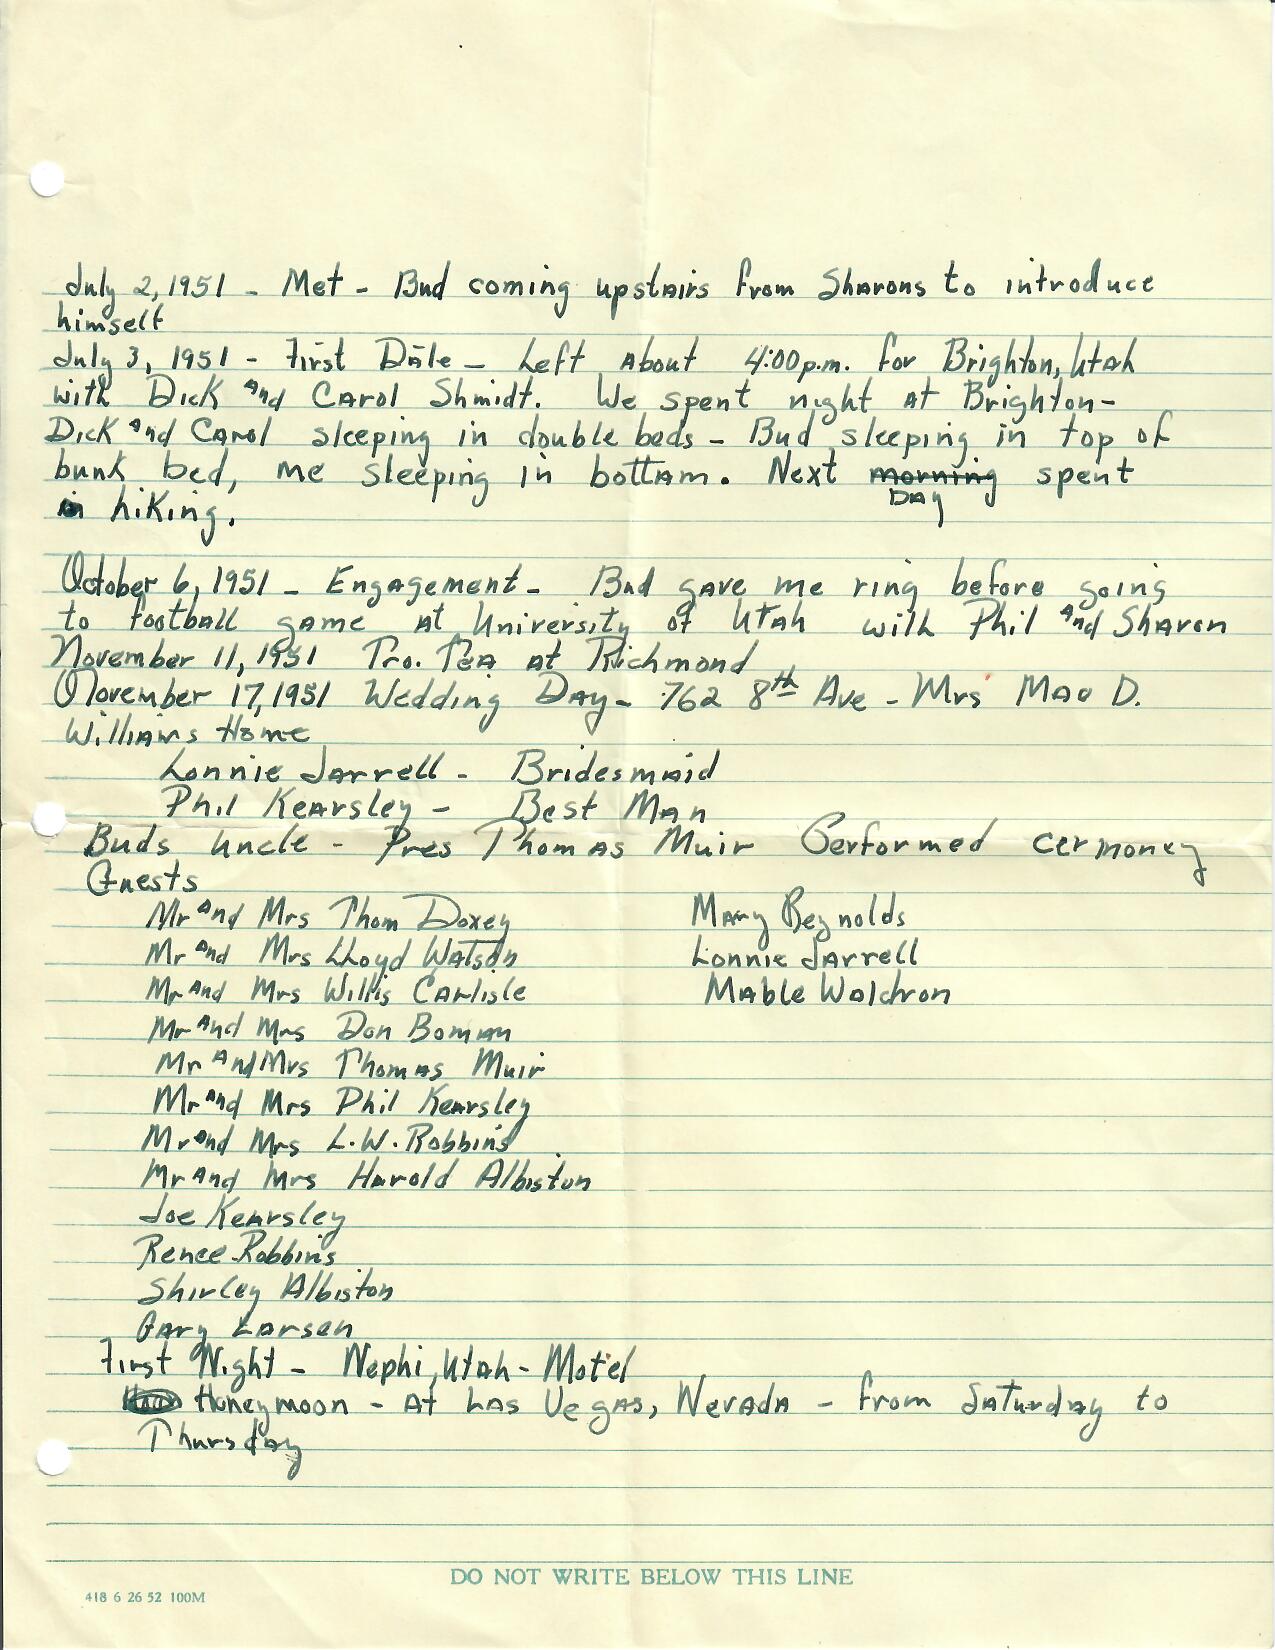 July 2, 1951 - Met - Bud coming upstairs from Sharons to introduce
himself
July 3, 1951 - First Date - Left About 4:00 p.m. for Brighton, Utah
with Dick and Carol Shmidt. We spent night at Brighton-
Dick and Carol sleeping in double beds - Bud sleeping in top of
bunk bed, me sleeping in bottam. Next morning spent
Day
in hiking.
October 6, 1951 - Engagement - Bud gave me ring before going
to football game at University of Utah with Phil and Sharon
November 11, 1951 Tro. Tea at Richmond
November 17, 1951 Wedding Day - 762 8th Ave - Mrs Mae D.
Williams Home
Lonnie Jarrell - Bridesmaid
Phil Kearsley - Best Man
Buds Uncle - Pres Thomas Muir Performed cermoney
Guests
Mr and Mrs Thom Doxey Mary Reynolds
Mr and Mrs Lloyd Watson Lonnie Jarrell
Mr and Mrs Willis Carlisle Mable Waldron
Mr and Mrs Don Boman
Mr and Mrs Thomas Muir
Mr and Mrs Phil Kearsley
Mr and Mrs L.W. Robbins
Mr and Mrs Harold Albiston
Joe Kearsley
Renee Robbins
Shirley Albiston
Gary Larsen
First Night - Nephi, Utah - Motel
Honeymoon - At Las Vegas, Nevada - from Saturday to
Thursday
DO NOT WRITE BELOW THIS LINE
418 6 26 52 100M